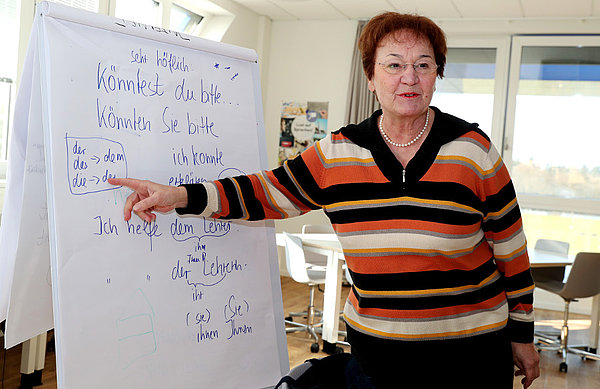 sehr höflich
Könntest du bitte...
Könnten Sie bitte
ich könnte
der
das → dem
die →
Ich helfe dem Lehrer
ihm
der Lehrerin
ihr
(sie) (Sie)
ihnen Ihnen